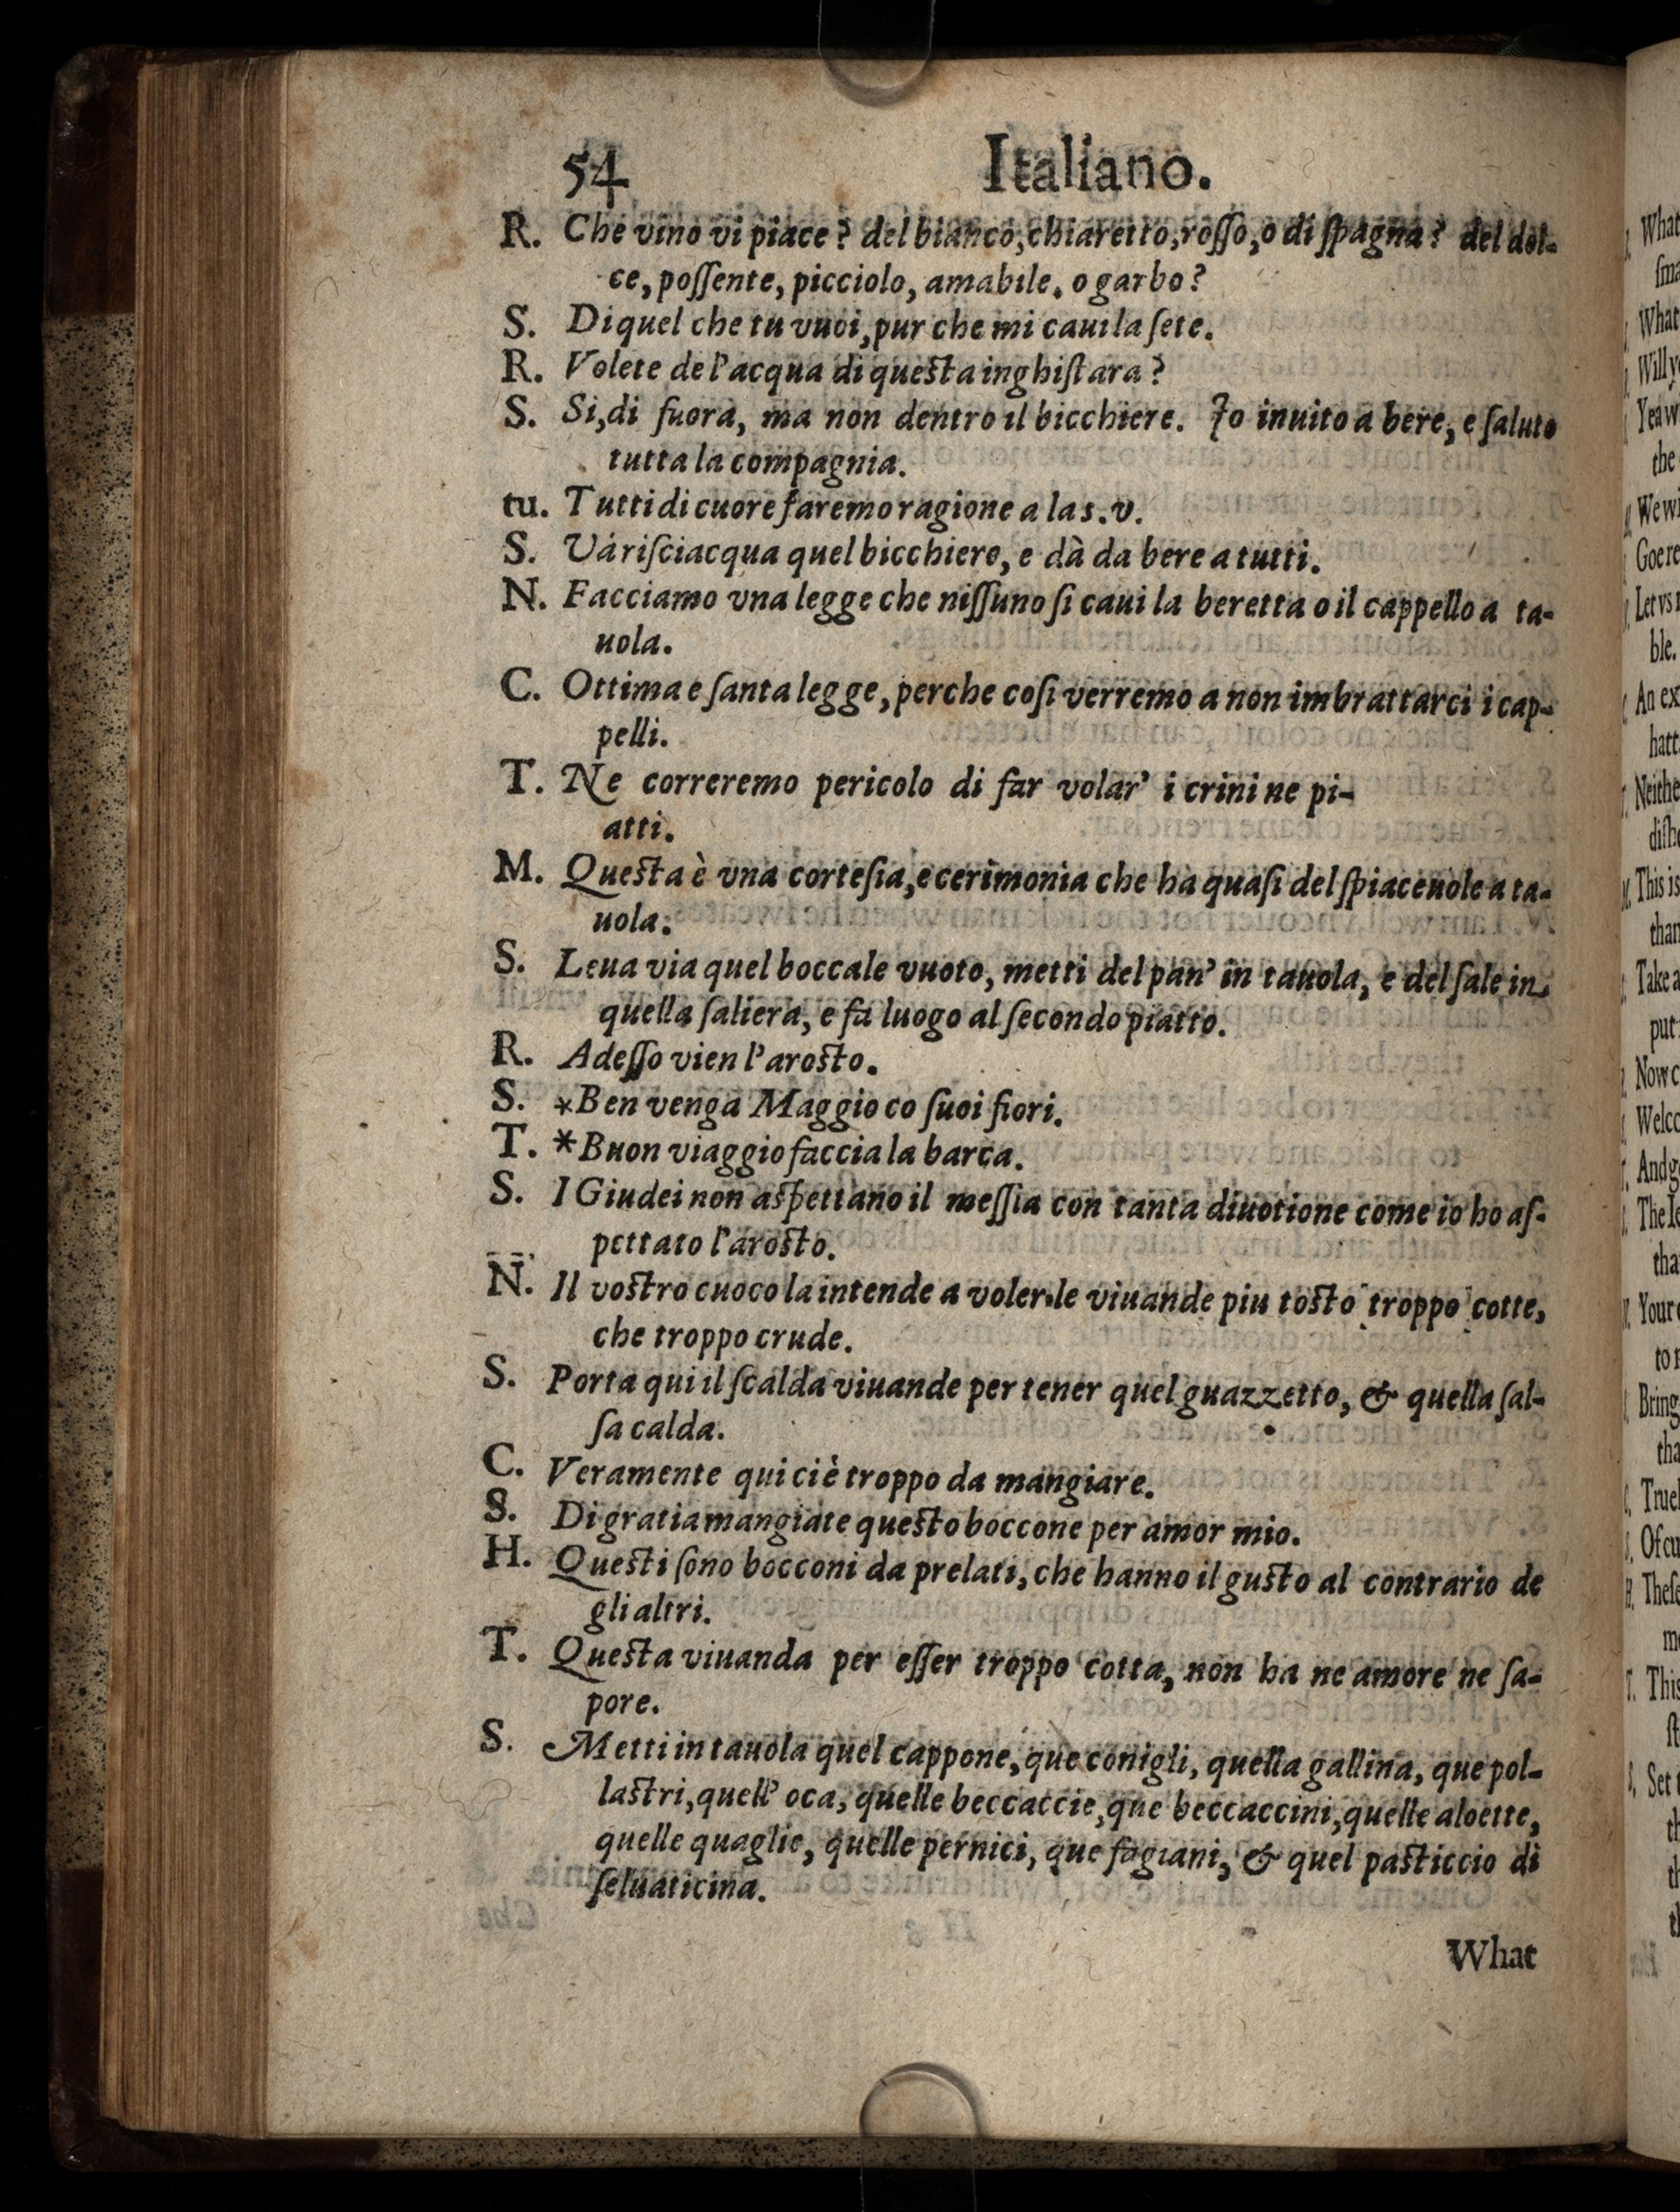 54 Italiano.
R. Che vino vi piace? del bianco, chiaretto, roſſo, o di ſpagna? del dol-
ce, poſſente, picciolo, amabile, o garbo?
S. Di quel che tu vuoi, pur che mi caui la ſete.
R. Volete de l'acqua di queſta inghiſtara?
S. Si, di fuora, ma non dentro il bicchiere. Io inuito a bere, e ſaluto
tutta la compagnia.
tu. Tutti di cuore faremo ragione a la s.v.
S. Và riſciacqua quel bicchiere, e dà da bere a tutti.
N. Facciamo vna legge che niſſuno ſi caui la beretta o il cappello a ta-
uola.
C. Ottima e ſanta legge, perche coſi verremo a non imbrattarci i cap-
pelli.
T. Ne correremo pericolo di far volar' i crini ne pi-
atti.
M. Queſta è vna corteſia, e cerimonia che ha quaſi del ſpiaceuole a ta-
uola.
S. Leua via quel boccale vuoto, metti del pan' in tauola, e del ſale in
quella ſaliera, e fa luogo al ſecondo piatto.
R. Adeſſo vien l'aroſto.
S. *Ben venga Maggio co ſuoi fiori.
T. *Buon viaggio faccia la barca.
S. I Giudei non aſpettano il meſſia con tanta diuotione come io ho aſ-
pettato l'aroſto.
N. Il voſtro cuoco la intende a voler le viuande piu toſto troppo cotte,
che troppo crude.
S. Porta qui il ſcalda viuande per tener quel guazzetto, & quella ſal-
ſa calda.
C. Veramente qui ci è troppo da mangiare.
S. Di gratia mangiate queſto boccone per amor mio.
H. Queſti ſono bocconi da prelati, che hanno il guſto al contrario de
gli altri.
T. Queſta viuanda per eſſer troppo cotta, non ha ne amore ne ſa-
pore.
S. Metti in tauola quel cappone, que conigli, quella gallina, que pol-
laſtri, quell' oca, quelle beccaccie, que beccaccini, quelle aloette,
quelle quaglie, quelle pernici, que fagiani, & quel paſticcio di
ſeluaticina.
What
What
ſma
What
Will y
Yea w
the
We wi
Goe re
Let vs
ble.
An ex
hatt
Neithe
diſh
This is
than
Take a
put
Now c
Welco
And g
The Ie
tha
Your
to
Bring
tha
Truel
Of cu
Theſe
m
This
ſt
Set
th
th